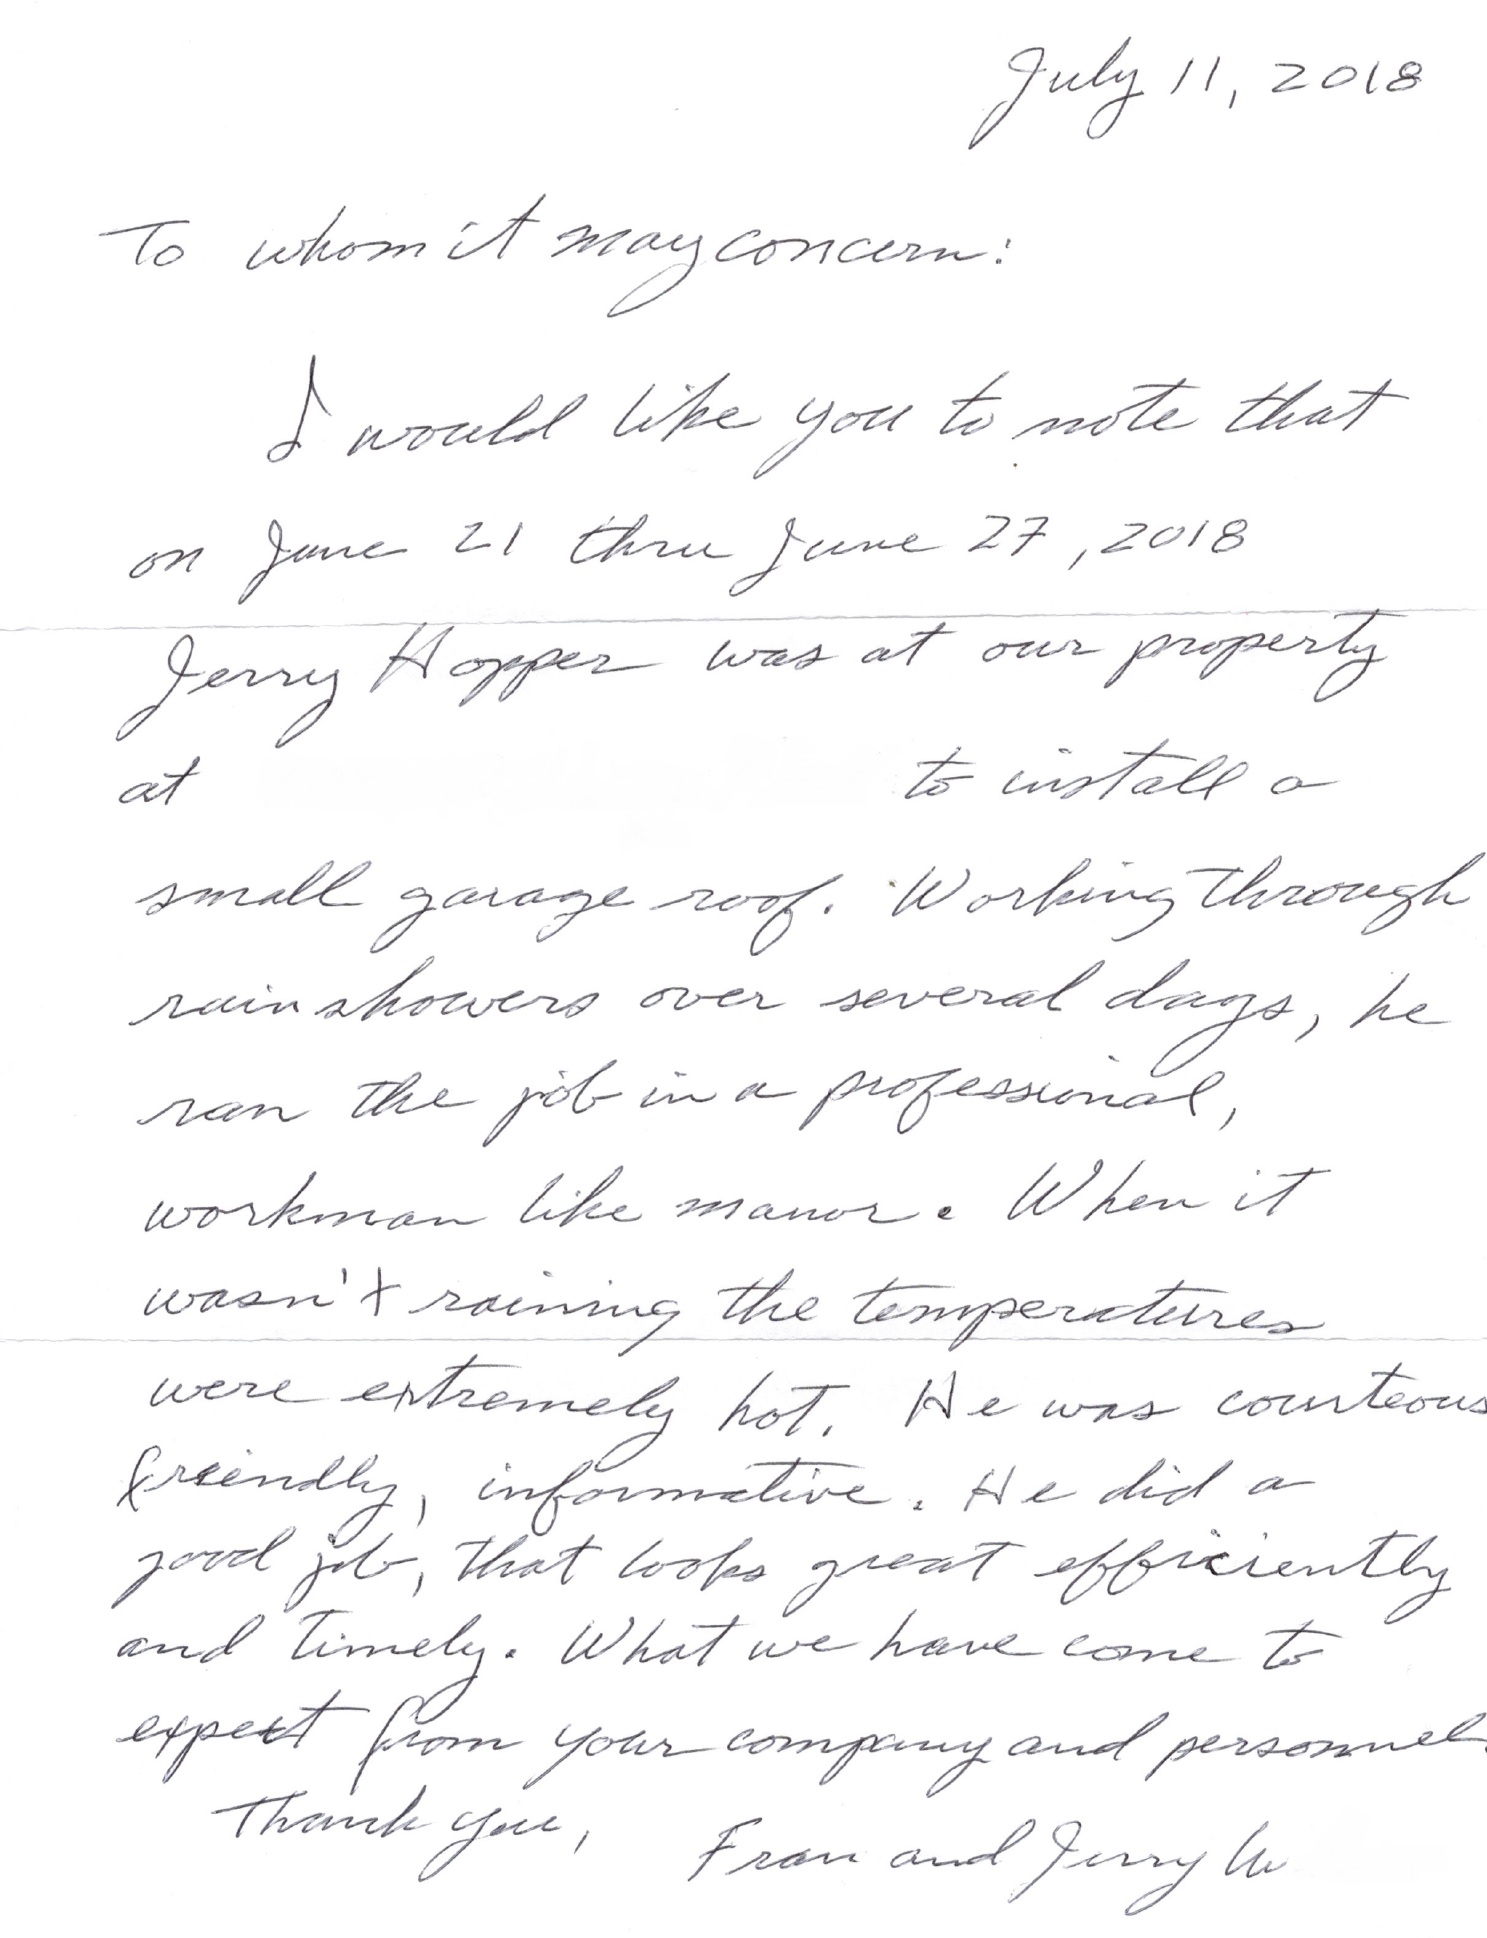 July 11, 2018
To whom it may concern:
I would like you to note that
on June 21 thru June 27, 2018
Jerry Hopper was at our property
at to install a
small garage roof. Working through
rain showers over several days, he
ran the job in a professional,
workman like manor. When it
wasn't raining the temperatures
were extremely hot. He was courteous
friendly, informative. He did a
good job, that looks great efficiently
and timely. What we have come to
expect from your company and personnel.
Thank you,
Fran and Jerry W